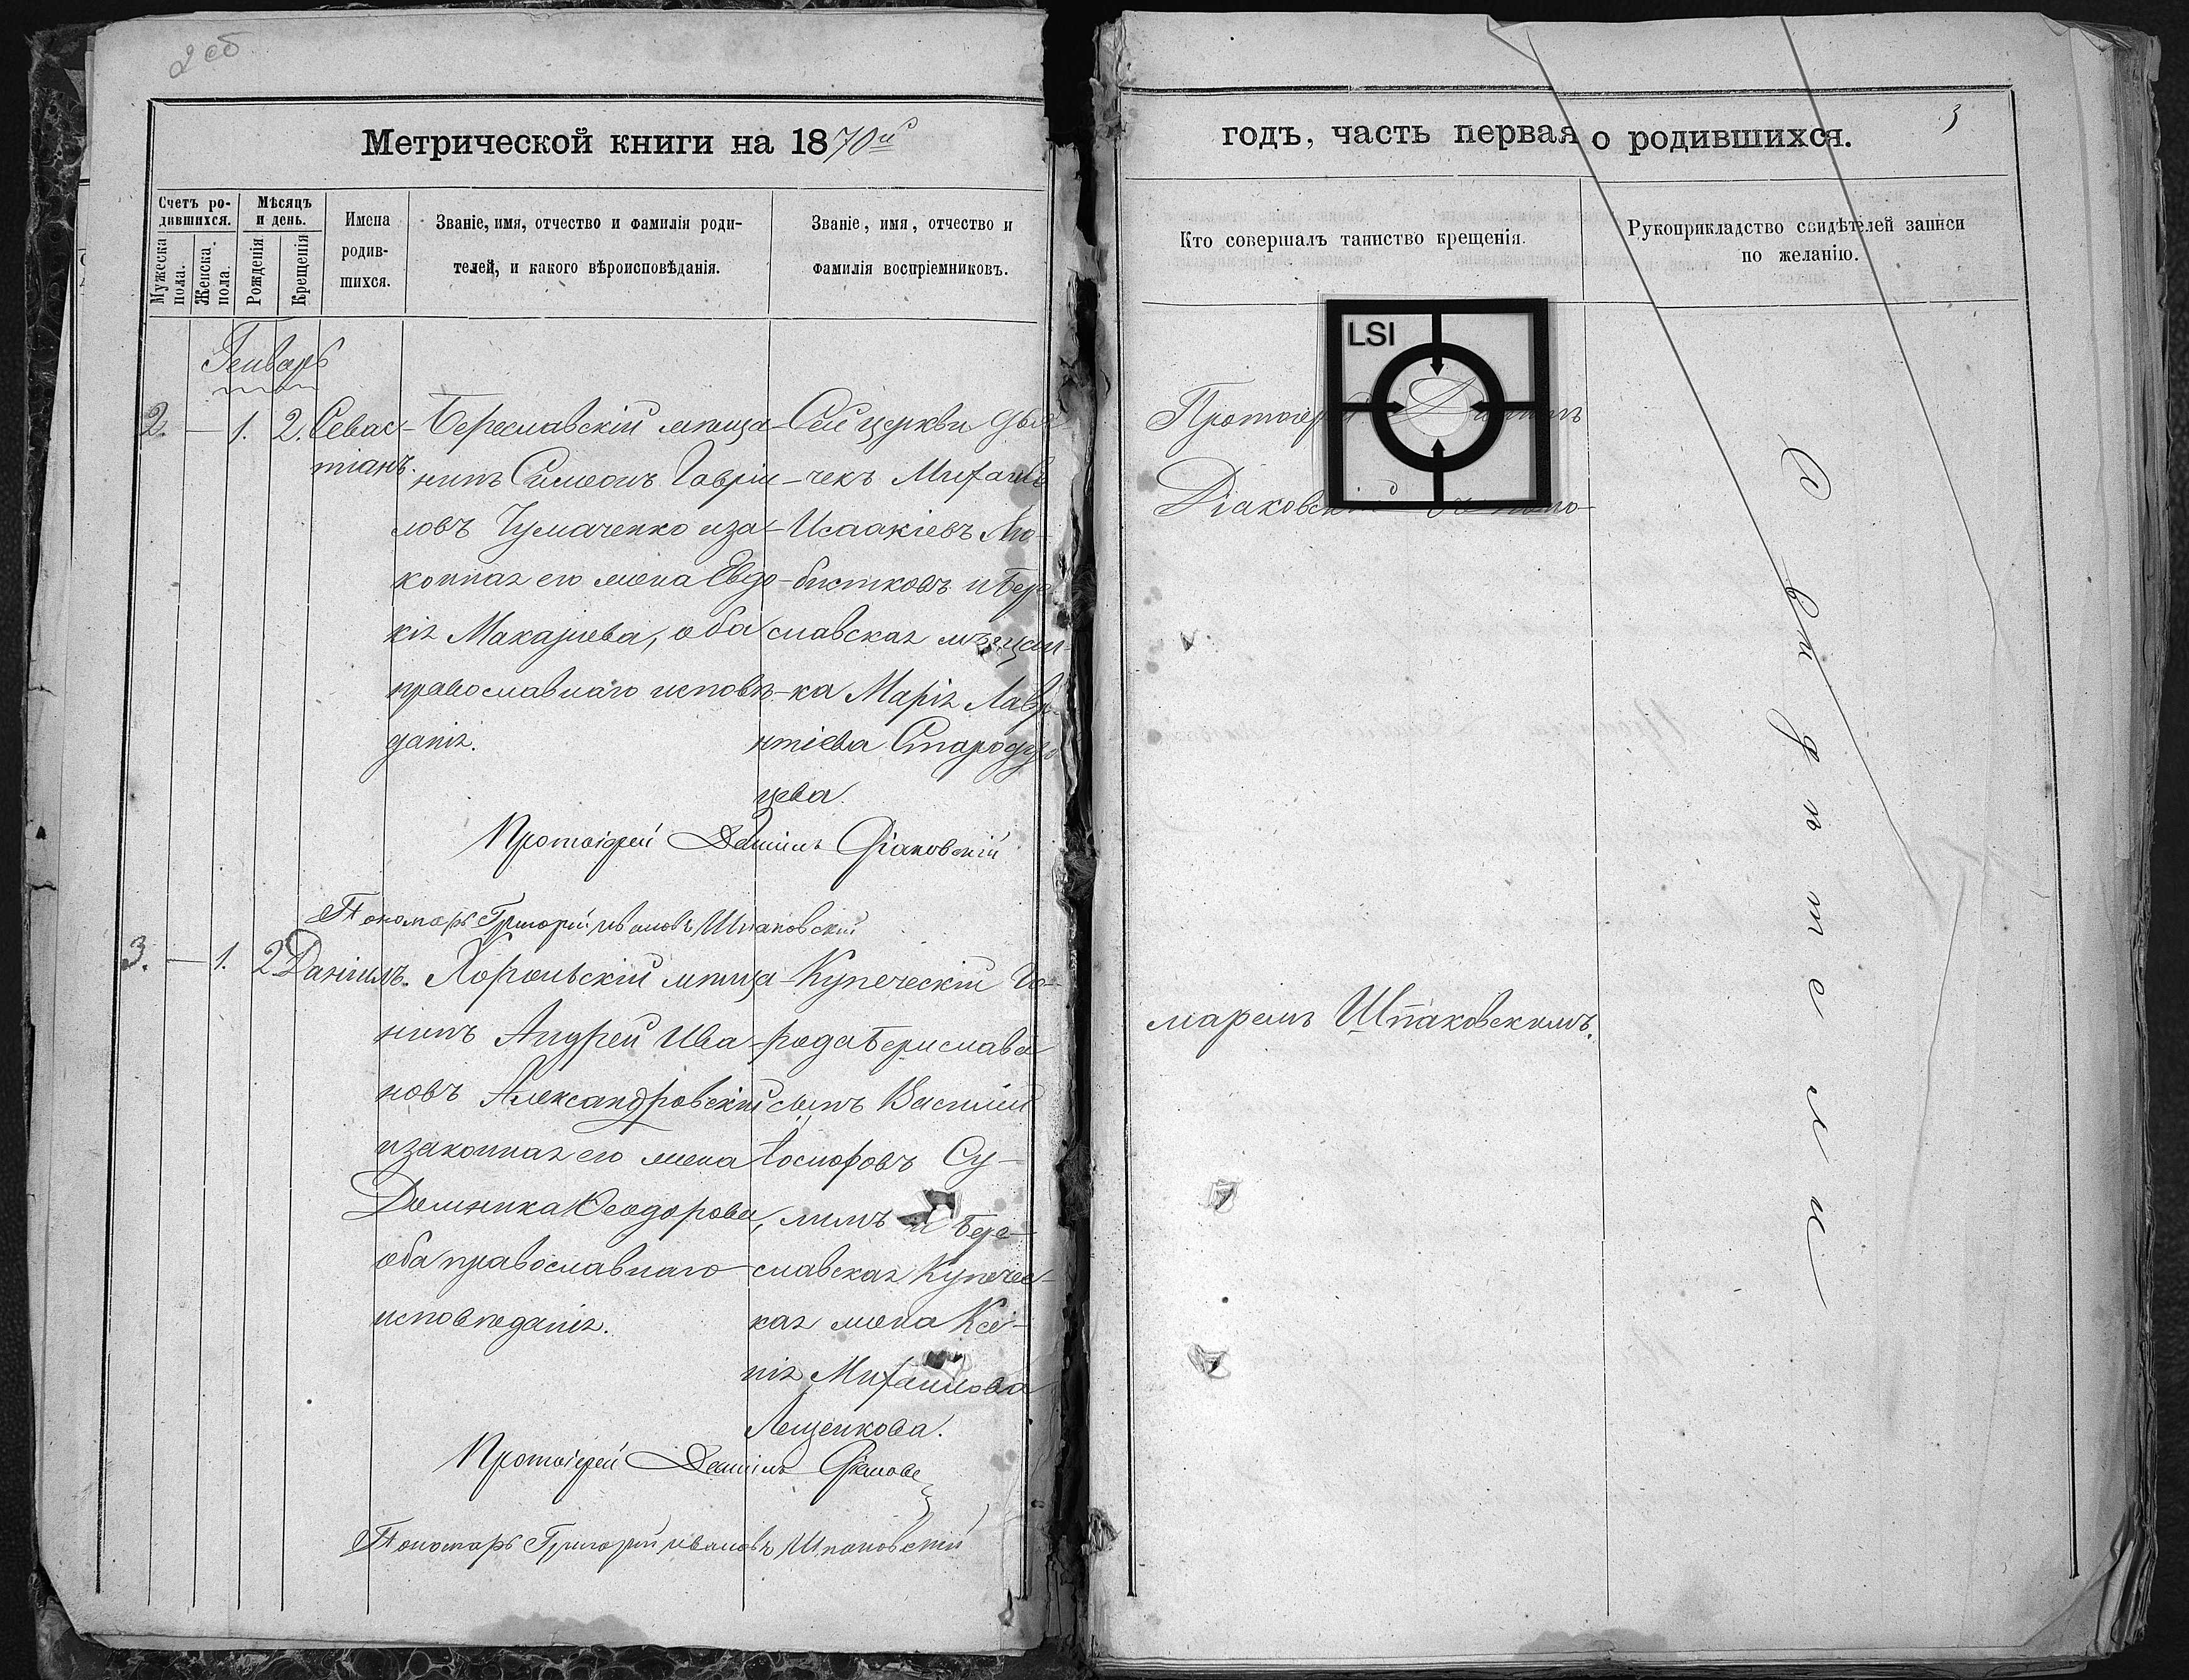 2 об
Метрической книги на 1870й
Счетъ ро-
дившихся.
Мужеска
пола.
Женска
пола.
Мѣсяцъ
и день.
Рожденія
Крещенія
Имена
родив-
шихся.
Званіе, имя, отчество и фамилія роди-
телей, и какого вѣроисповѣданія.
Званіе, имя, отчество и
фамилія воспріемниковъ.
Генварь
2. — 1. 2. Севас-
тіанъ.
Береславскій мѣща-
нинъ Симеонъ Гаврiи-
ловъ Чумаченко иза-
конная его жена Евдо-
кія Макарiева, оба
православнаго исповѣ-
данія.
Сей церкви дья
чекъ Михаилъ
Исаакіевъ Лю-
бистковъ и Бере
славская мѣщан-
ка Марія Лавре
нтіева Стародуб
цева.
Протоіерей Даніилъ Діаковскій
Пономарь Григорій Ивановъ Шпаковскій
3. — 1. 2 Даніилъ.
Хорольскій мѣща-
нинъ Андрей Ива-
новъ Александровскій
изаконная его жена
Домникия Ѳеодорова,
оба православнаго
исповѣданія.
Купеческій го-
рода Берислава
сынъ Василій
Іосифовъ Су-
лимъ и Бере-
славская Купечес-
кая жена Ксе-
нія Михаилова
Лещенкова.
Протоіерей Даніилъ Діаковс
Пономарь Григорій Ивановъ Шпаковскій
годъ, часть первая о родившихся.
3
Кто совершалъ таинство крещенія.
Рукоприкладство свидѣтелей записи
по желанію.
LSI
Протоіерей Даніилъ
Діаковскій съ поно-
маремъ Шпаковскимъ.
Свидѣтели